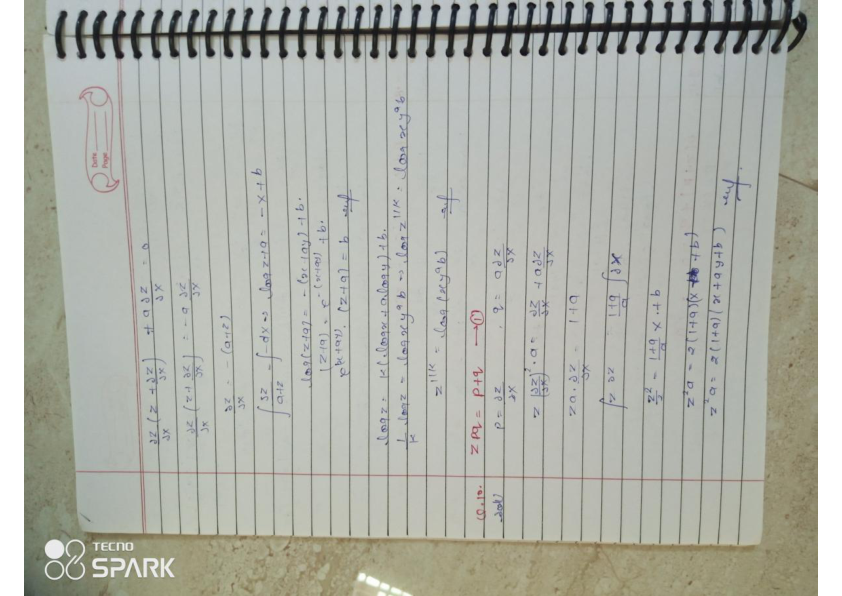 Date
Page
∂z/∂x (z + ∂z/∂x) + a ∂z/∂x = 0
∂z/∂x (z + ∂z/∂x) = -a ∂z/∂x
∂z/∂x = -(a+z)
∫ ∂z/(a+z) = ∫-dx ⇒ log z+a = -x+b
log(z+a) = -(x+ay)+b.
(z+a) = e^-(x+ay) + b.
e^(x+ay). (z+a) = b
log z = k(log x + a log y) + b.
1/k log z = log x y^a b ⇒ log z^1/k = log x y^a b
z^1/k = log (x y^a b)
Q.10. z pq = p+q → ①
Sol) p = ∂z/∂x . q = a∂z/∂x
z (∂z/∂x)² . a = ∂z/∂x + a∂z/∂x
z a . ∂z/∂x = 1+a
∫ z ∂z = (1+a)/a ∫∂x
z²/2 = (1+a)/a x . + b
z²a = 2(1+a)(x + b)
z²a = 2(1+a)(x+ay+b)
TECNO
SPARK